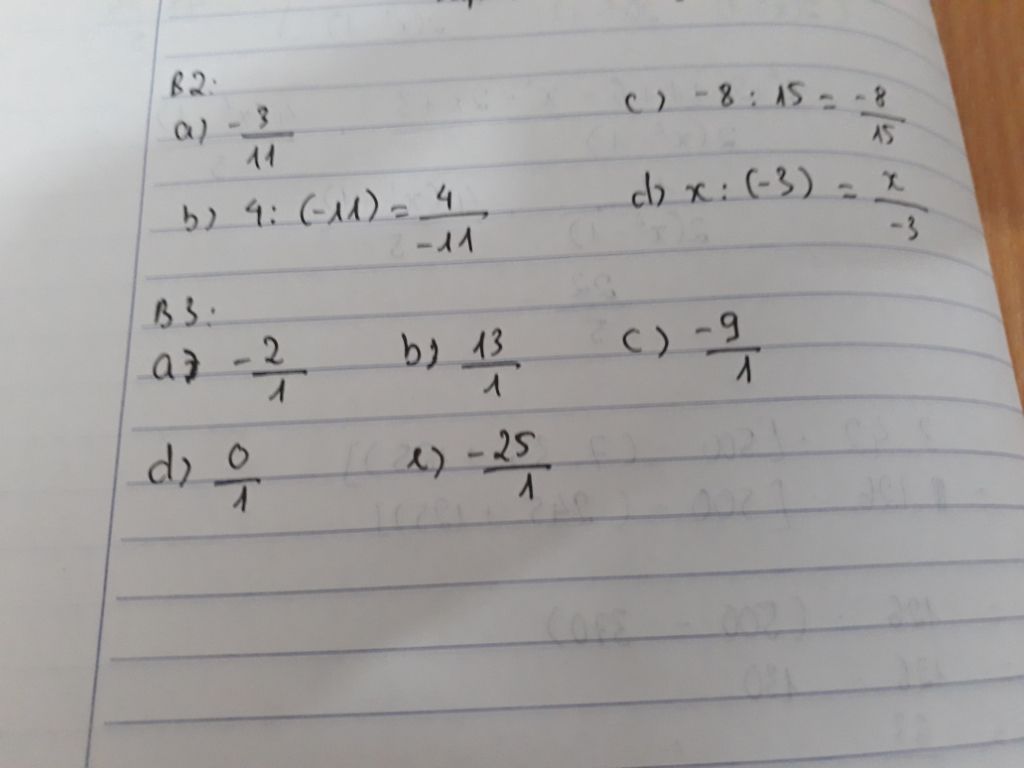 B2:
a) -3/11
c) -8 : 15 = -8/15
b) 4 : (-11) = 4/-11
d) x : (-3) = x/-3
B3:
a) -2/1 b) 13/1 c) -9/1
d) 0/1 e) -25/1